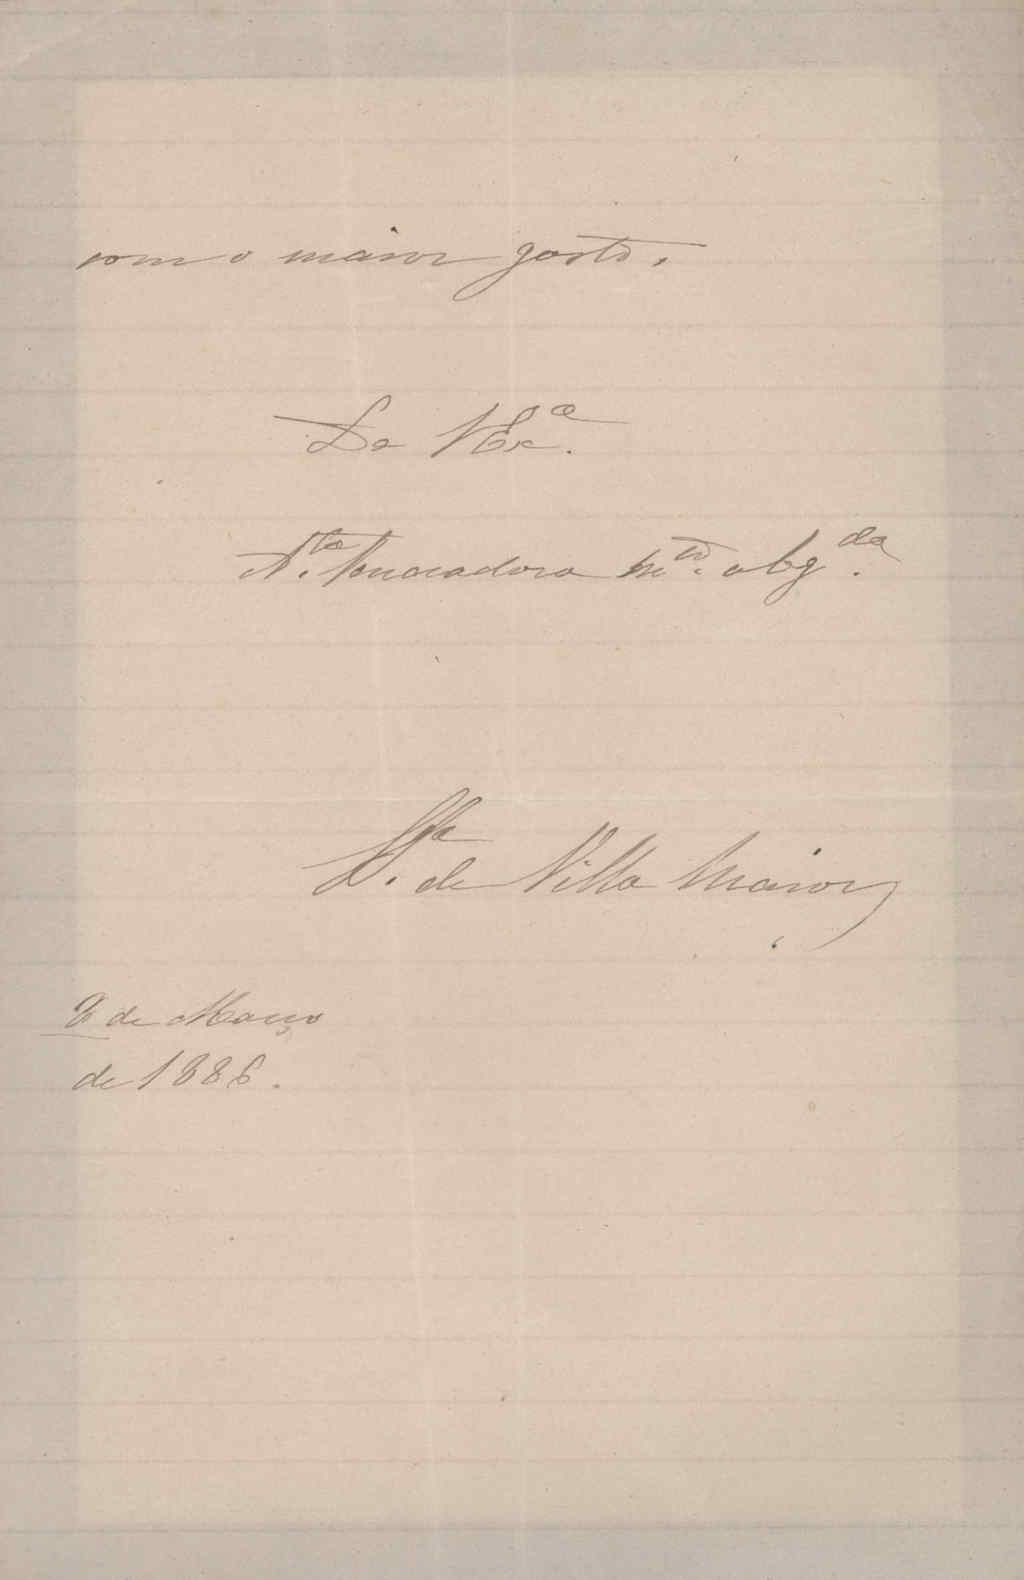 com o maior gosto.
De VExª.
Attª. Veneradora mtº. obgda.
Vssa. de Villa Maior
2 de Março
de 1886.